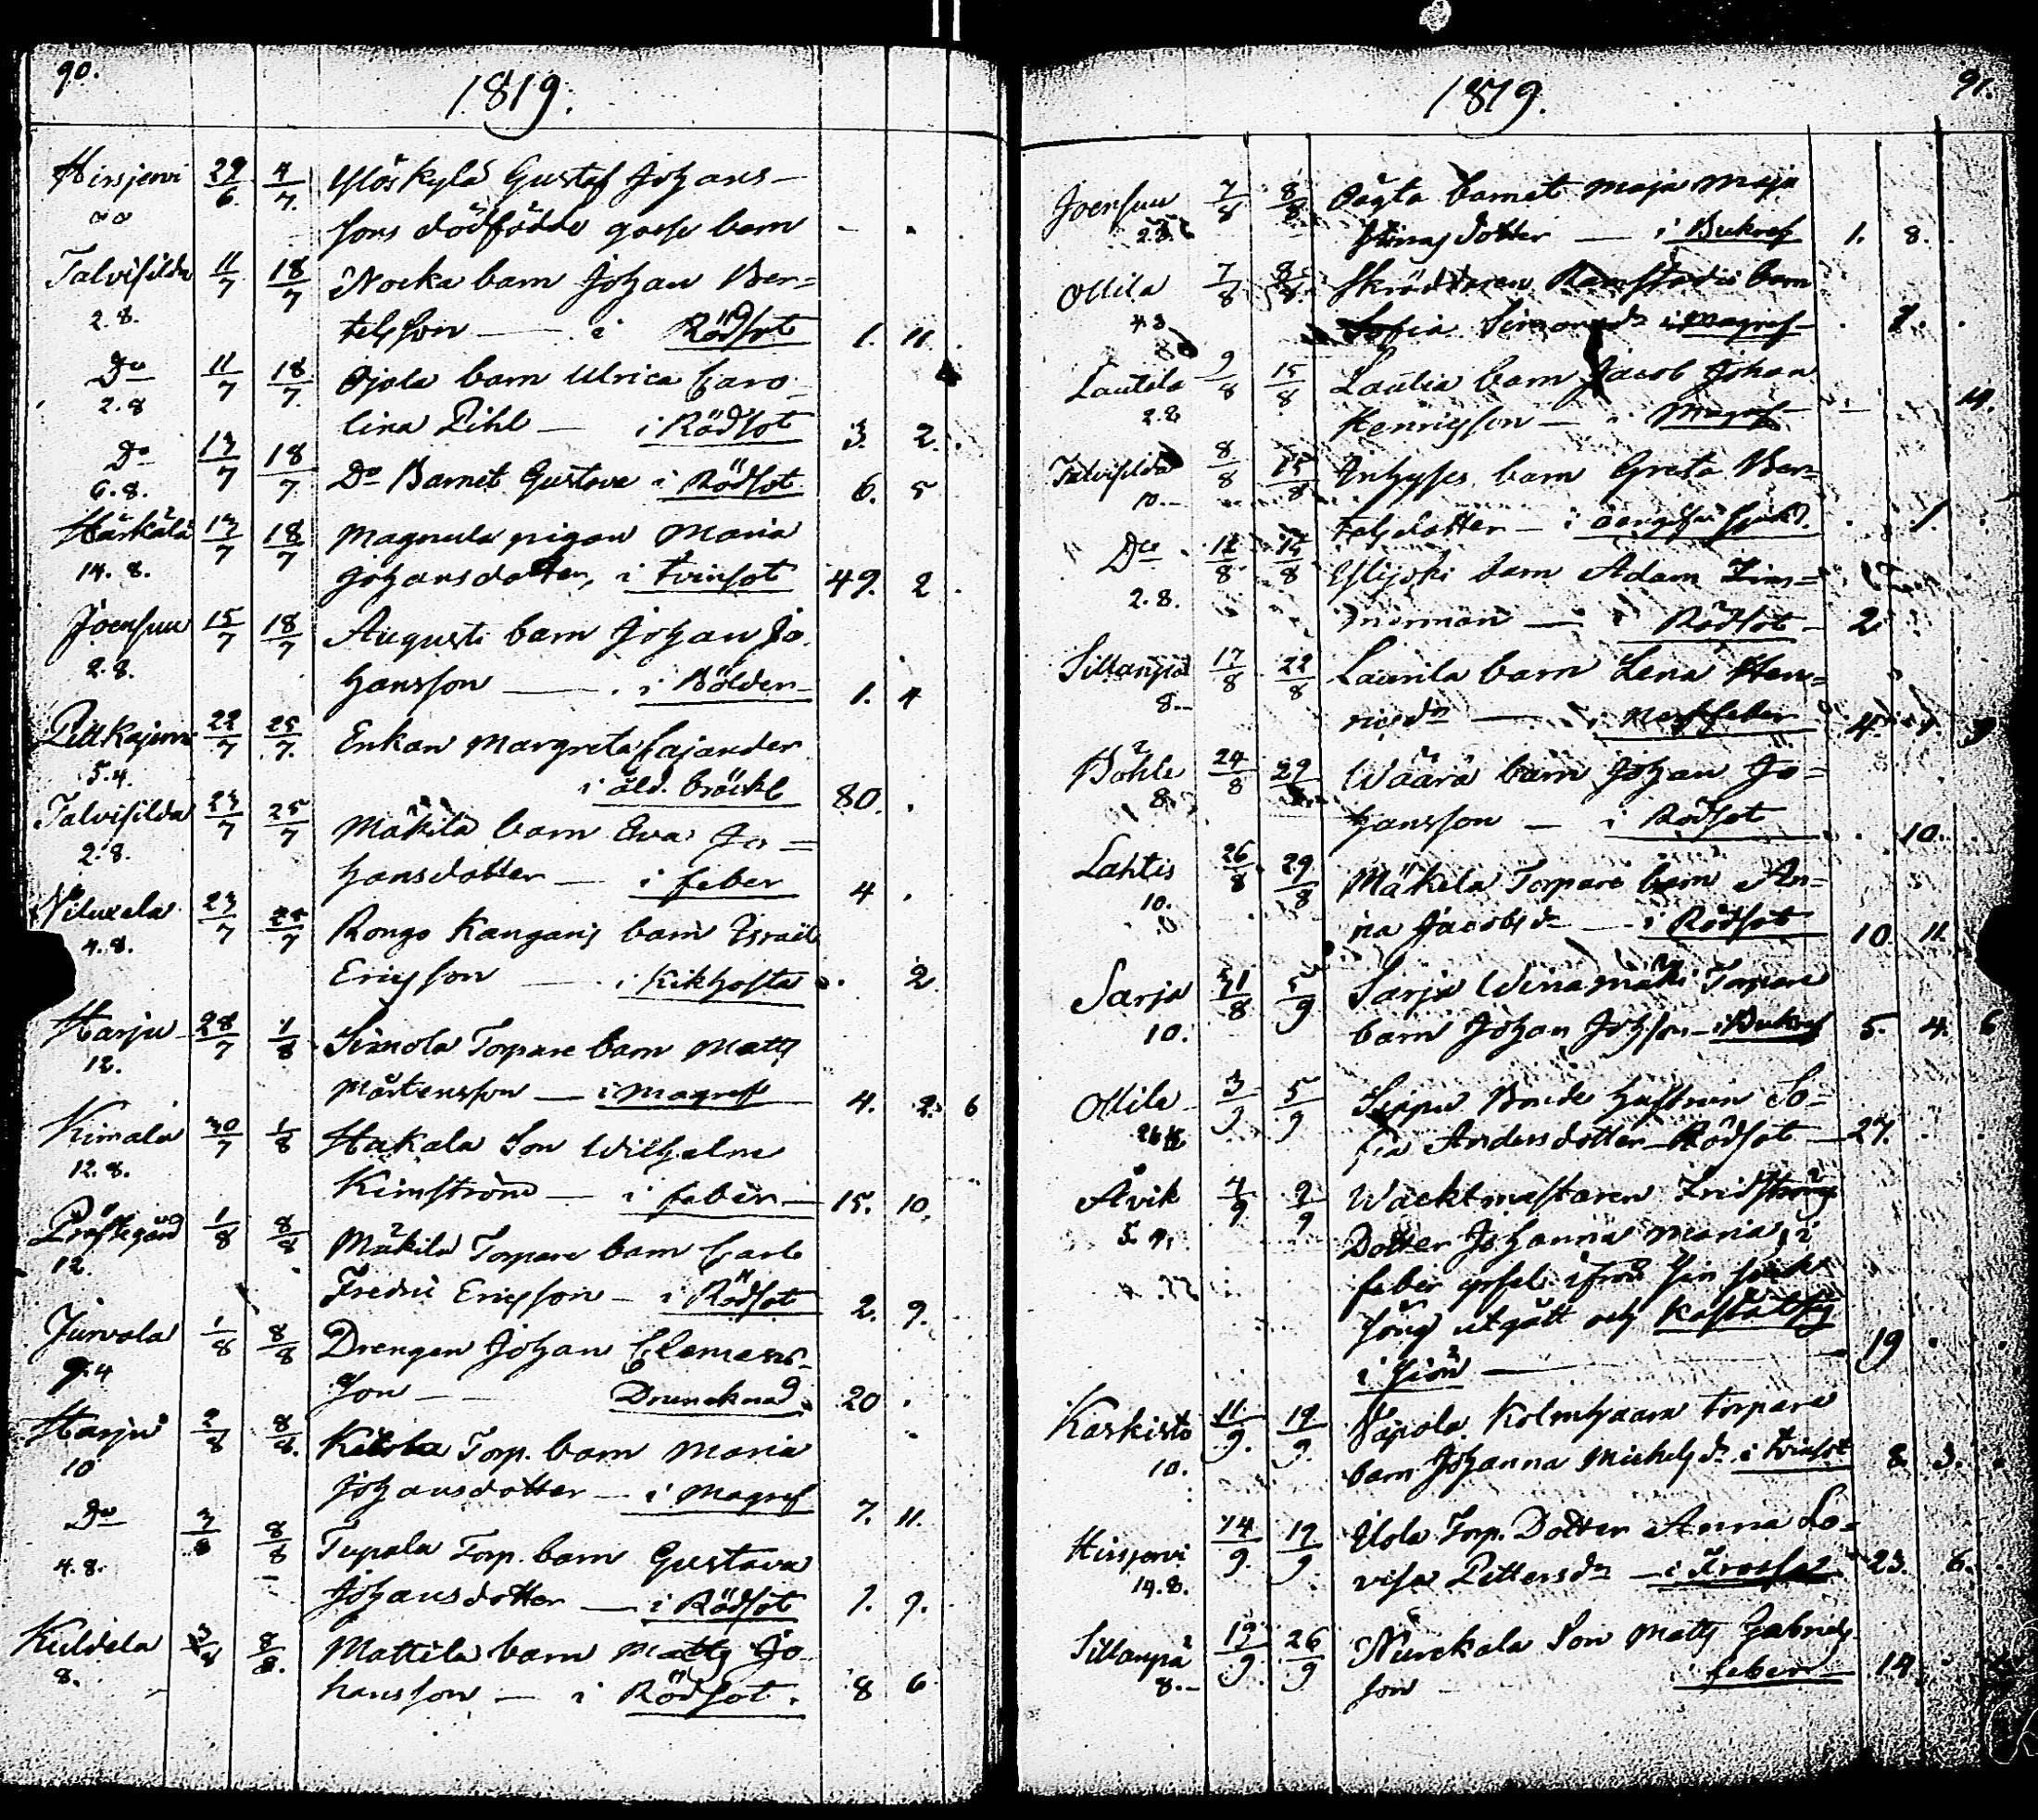 90.
1819.
Hirsjervi 29/6. 4/7. Yloskylä Gustaf Johans-
sons dödfödde gosse barn - .
Talvisilda 11/7 18/7 Nocka barn Johan Ber=
2.8. telsson - i Rödsot 1. 11.
Do 11/7 18/7. Ojala barn Ulrica Caro-
2.8 lina Pihl - i Rödsot 3. 2.
Do 13/7 18/7 Do Barnet Gustava i Rödsot 6. 5
6.8.
Härkälä 13/7 18/7 Magnula pigan Maria
14.8. Johansdotter, i tvinsot 49. 2.
Joensuu 15/7 18/7 Augusti barn Johan Jo
2.8. hansson - i Bölder 1. 4
Pitkäjervi 22/7 25/7. Enkan Margreta Cajander
5.4. i åld. bräckl 80.
Talvisilda 23/7 25/7 Mäkilä barn Eva Jo=
2.8. hansdotter - i feber 4.
23/7 25/7 Rongo Kangaris barn Israel
4.8. Ericsson - i Kikhosta . 2.
Harju 28/7 1/8 Simola Torpare barn Matts
12. Mårtensson - i Magref 4. 2. 6
Kimala 30/7 1/8 Hakala Son Wilhelm
12.8. Kimström - i feber - 15. 10.
Prästegård 1/8 8/8 Mäkilä Torpare barn Carl
12. Fredric Ericsson - i Rödsot 2. 9.
Jurvala 1/8 8/8 Drengen Johan Clemens-
9.4 son - Drunknad. 20.
Harju 2/8 8/8. Torp. barn Maria
10 Johansdotter - i Magref 7. 11.
Do 3/8 8/8 Tupala Torp. barn Gustava
4.8. Johansdotter - i Rödsot 1. 9.
Kuldela 3/8 8/8. Mattila barn Matts Jo
8. hansson - i Rödsot. 8 6
91.
1819.
Joensuu 7/8 8/8 barnet Maja Maja
2.8. Stinas dotter - i Bukref 1. 8.
Ollila 7/8 8/8 Skräddaren barn
4.8 Sofia Simonsdr i Magref
Lautila 9/8 15/8 Laulia barn Jacob Johan
2.8 Henricsson - i Magref - 14.
Talvisilda 8/8 15/8 barn Greta Ber=
10. telsdotter - i 1.
Do 12/8 15/8 barn Adam Tim=
2.8. merman - i Rödsot - 2
Sillanpä 17/8 22/8 Laurila barn Lena Hen=
8. ricsdr - i Nerffeber 4.
Böhle 24/8 29/8 Wäärä barn Johan Jo=
8. hansson - i Rödsot . 10.
Lahtis 26/8 29/8 Mäkela Torpare barn An=
10. na Jacobsdr - i Rödsot 10. 11.
Sarja 31/8 5/9 Sarja Winamäki Torpare
10. barn Johan Johsson - i Bukref 5. 4. 6
Ollila 3/9 5/9 Seppä Bonde hustrun So=
fia Andersdotter - Rödsot - 27.
Åvik 4/9 9/9 Wacktmästaren Fridströms
5.9. Dotter Johanna Maria, i
feber yrsel ifrån sin siuk
säng utgått och kastat sig
i siön - 19
Karkisto 11/9. 19/9. Napola Kolmhaara torpare
10. barn Johanna Michelsdr i tvinsot 8. 3.
Hirsjervi 14/9. 19/9 Ilola Torp. Dotter Anna Lo=
14.8. visa Pettersdr - i 23. 6.
Sillanpä 19/9. 26/9 Nurckala Son Matts Gabriels
8. son - i feber - 14.